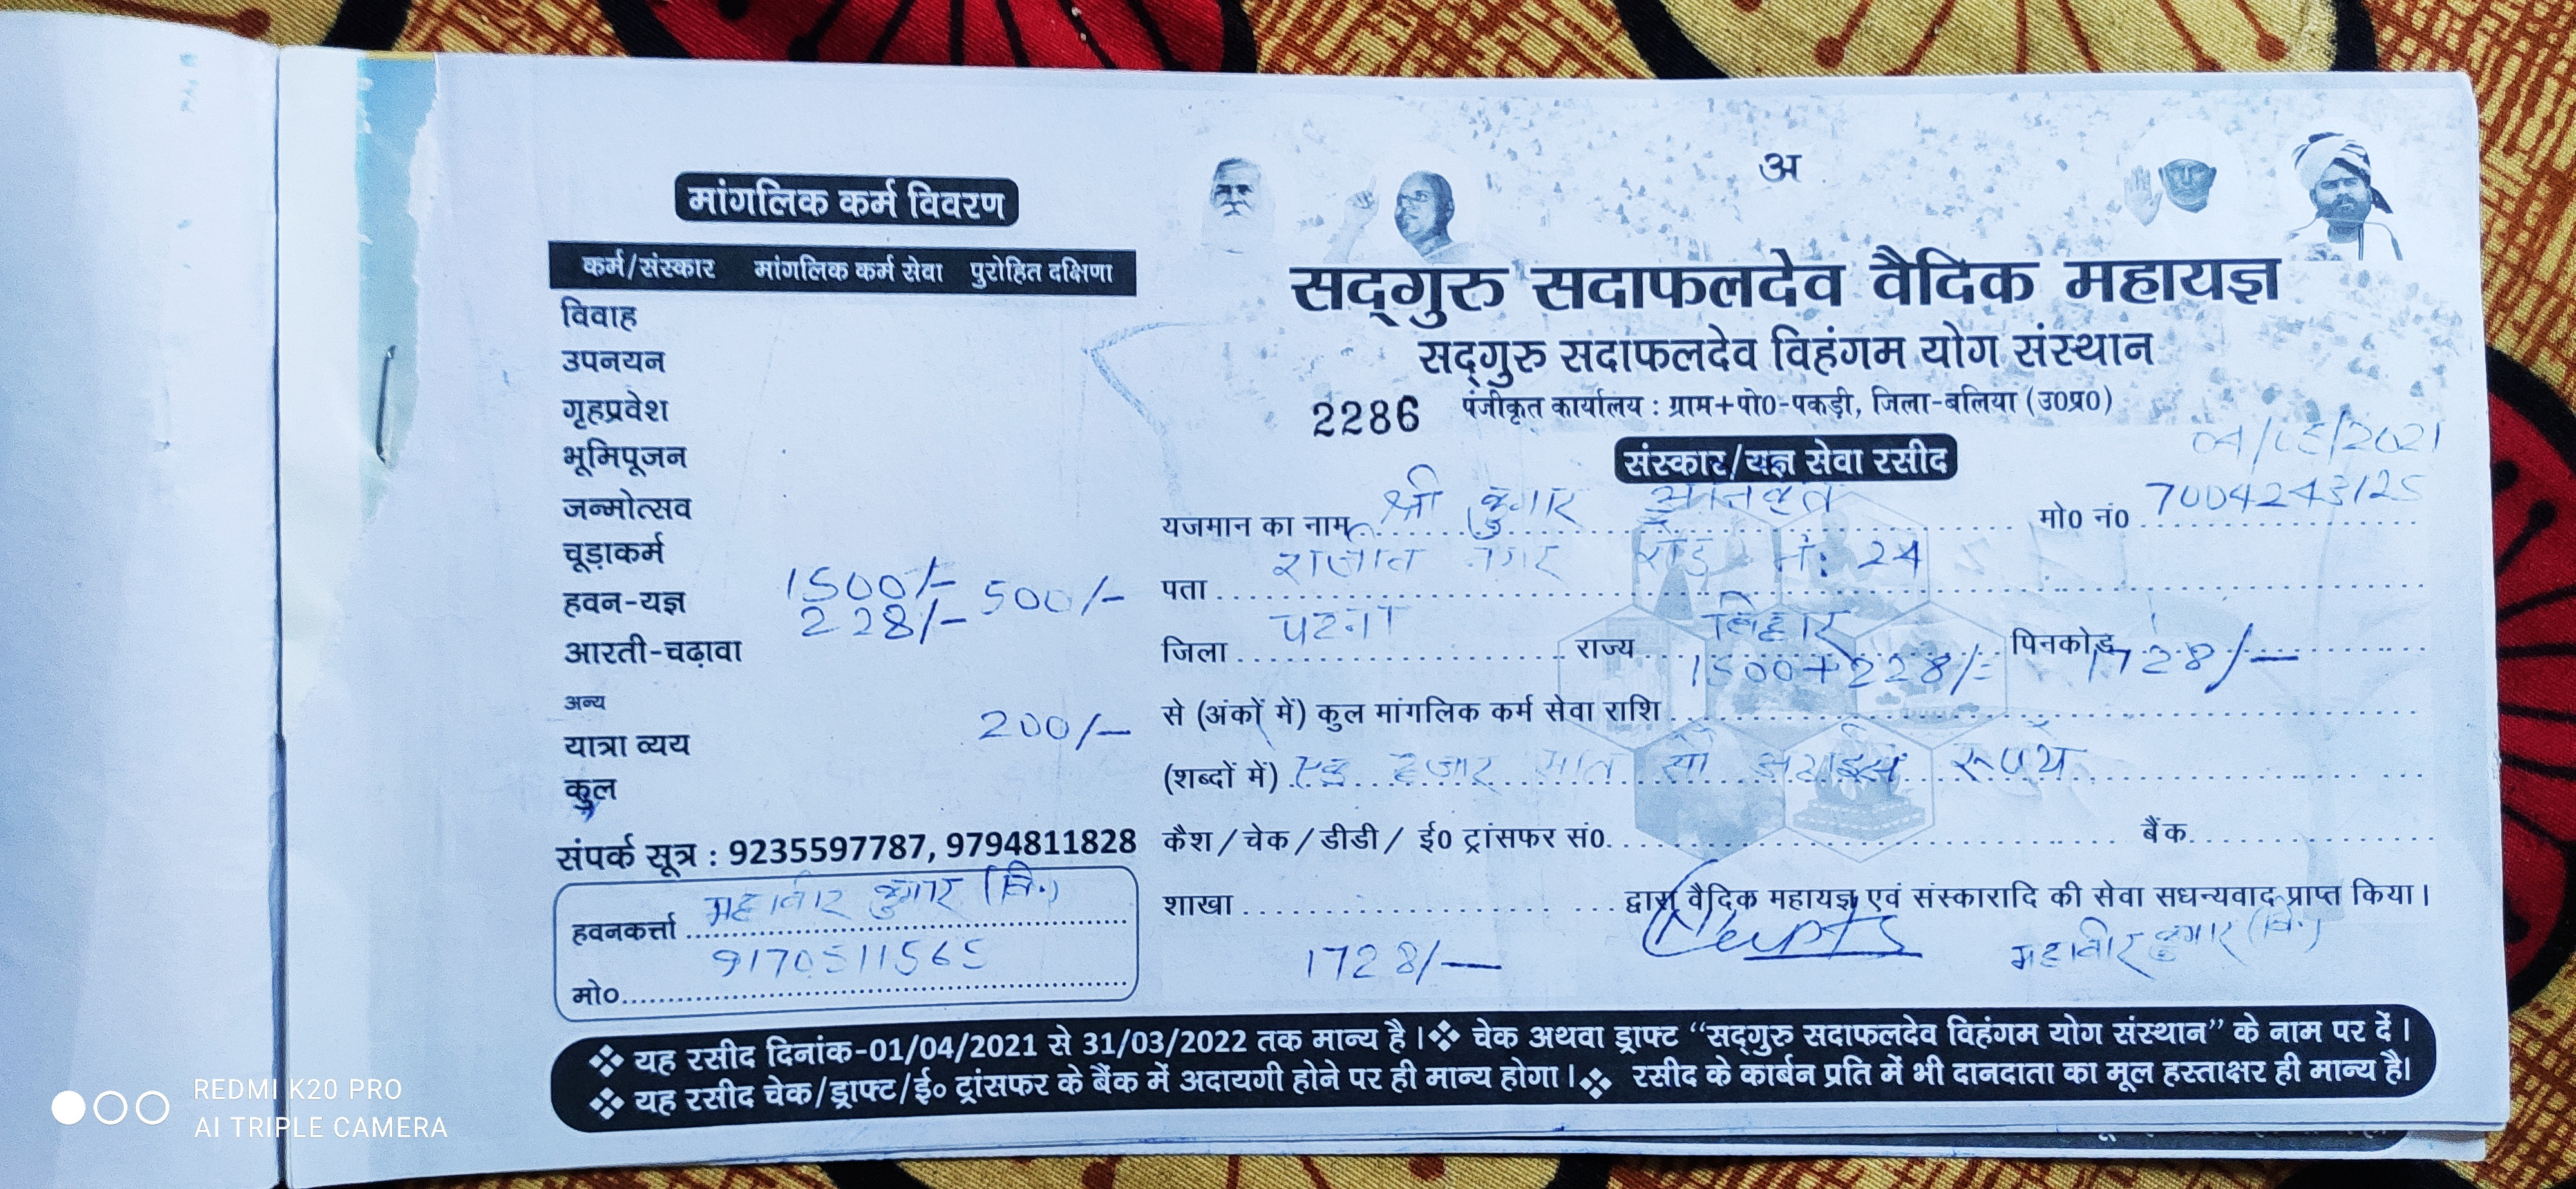 मांगलिक कर्म विवरण
कर्म/संस्कार मांगलिक कर्म सेवा पुरोहित दक्षिणा
विवाह
उपनयन
गृहप्रवेश
भूमिपूजन
जन्मोत्सव
चूड़ाकर्म
हवन-यज्ञ 1500/- 500/-
228/-
आरती-चढ़ावा
अन्य
यात्रा व्यय 200/-
कुल
संपर्क सूत्र : 9235597787, 9794811828
हवनकर्त्ता महावीर कुमार (वि.)
मो० 9170511565
अ
सद्गुरु सदाफलदेव वैदिक महायज्ञ
सद्गुरु सदाफलदेव विहंगम योग संस्थान
2286 पंजीकृत कार्यालय : ग्राम+पो०-पकड़ी, जिला-बलिया (उ०प्र०)
संस्कार/यज्ञ सेवा रसीद
यजमान का नाम श्री कुमार मो० नं० 7004243125
पता नगर रोड नं: 24
जिला पटना राज्य बिहार पिनकोड
से (अंकों में) कुल मांगलिक कर्म सेवा राशि 1500+228/= 1728/-
(शब्दों में) एक हजार सात सौ अठाईस रूपये
कैश/चेक/डीडी/ ई० ट्रांसफर सं० बैंक
शाखा द्वारा वैदिक महायज्ञ एवं संस्कारादि की सेवा सधन्यवाद प्राप्त किया।
1728/- महावीर कुमार (वि.)
❖ यह रसीद दिनांक-01/04/2021 से 31/03/2022 तक मान्य है। ❖ चेक अथवा ड्राफ्ट “सद्गुरु सदाफलदेव विहंगम योग संस्थान” के नाम पर दें।
❖ यह रसीद चेक/ड्राफ्ट/ई० ट्रांसफर के बैंक में अदायगी होने पर ही मान्य होगा। ❖ रसीद के कार्बन प्रति में भी दानदाता का मूल हस्ताक्षर ही मान्य है।
REDMI K20 PRO
AI TRIPLE CAMERA